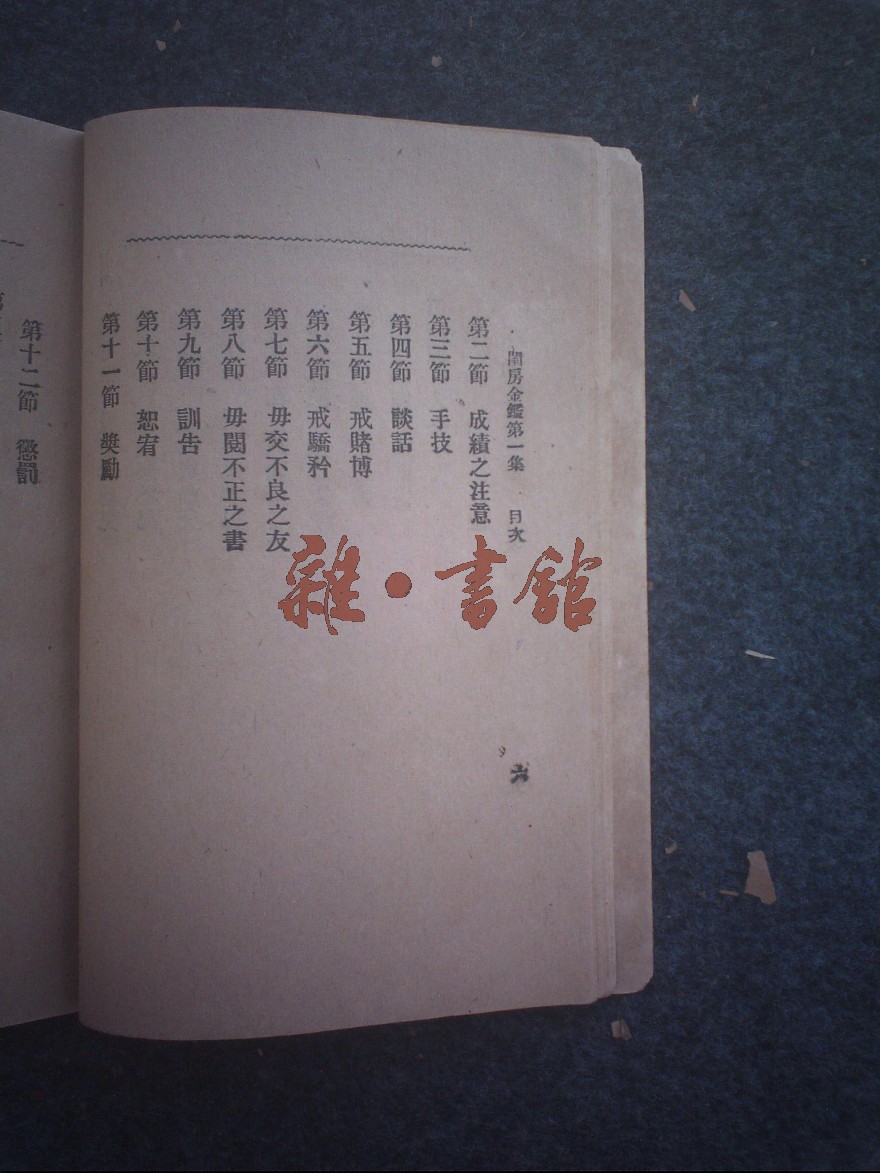 閨房金鑑第一集 目次
六
第二節 成績之注意
第三節 手技
第四節 談話
第五節 戒賭博
第六節 戒驕矜
第七節 毋交不良之友
第八節 毋閱不正之書
第九節 訓告
第十節 恕宥
第十一節 獎勵
第十二節 懲罰
雜·書館